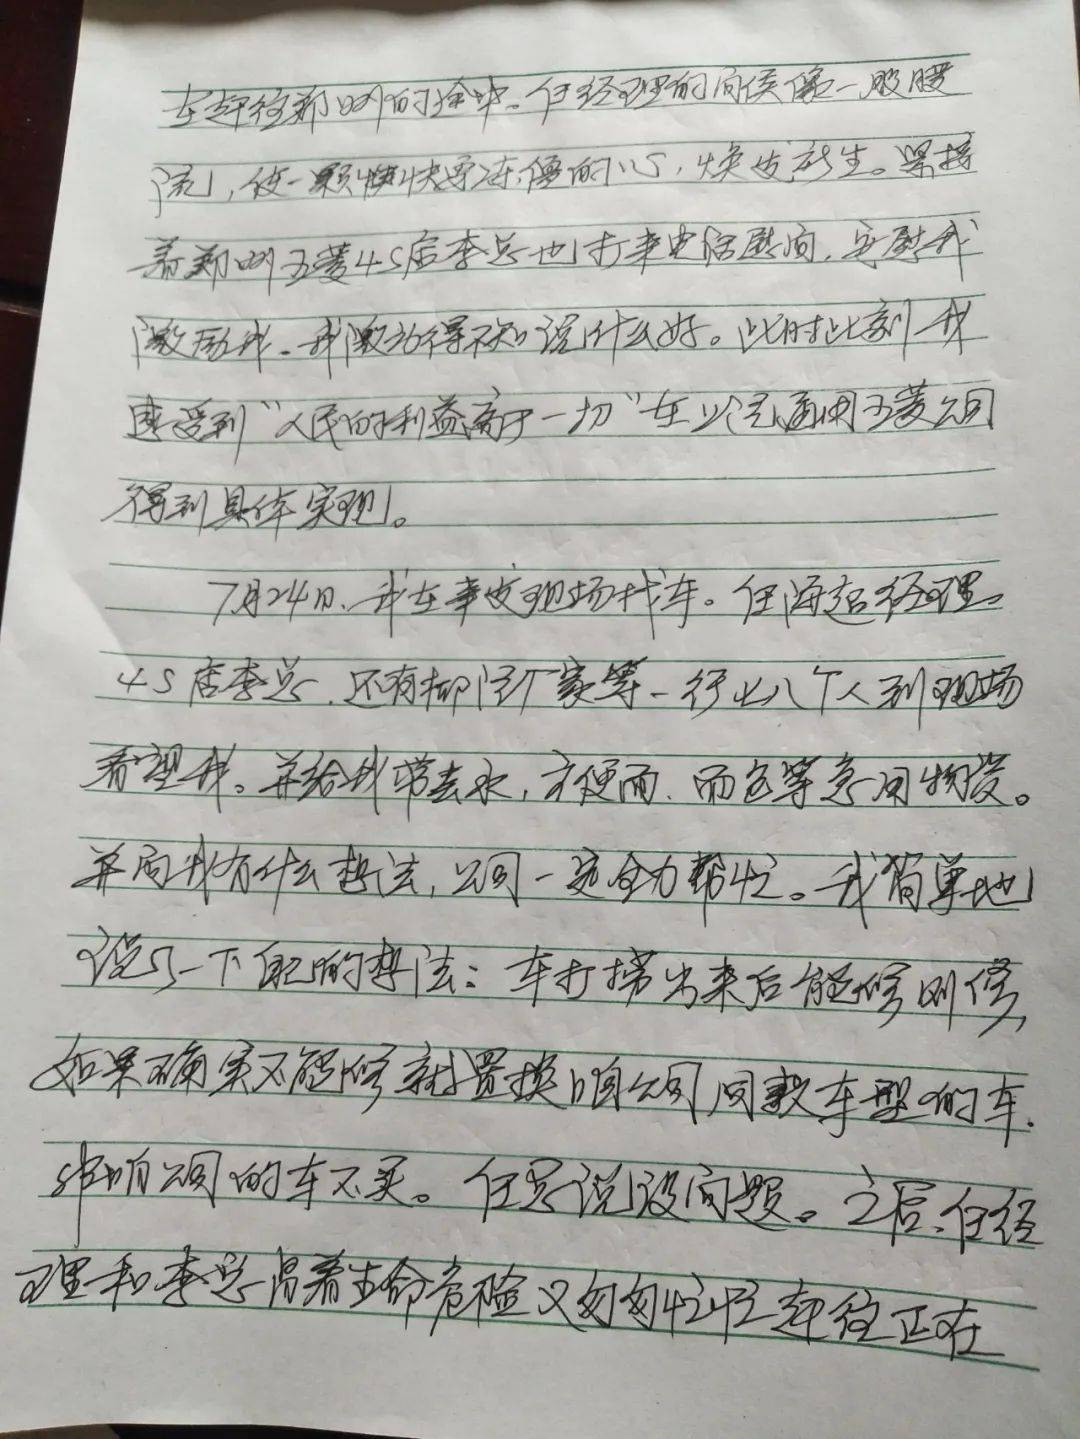 在赶往郑州的途中。任经理的问侯像一股暖
流，使一颗快快要冻僵的心，焕发新生。紧接
着郑州五菱4S店李总也打来电话慰问，安慰我
激励我。我激动得不知说什么好。此时此刻我
感受到“人民的利益高于一切”在上汽通用五菱公司
得到具体实现。
7月24日、我在事发现场找车。任海超经理。
4S店李总、还有部门厂家等一行七八个人到现场
看望我。并给我带去水，方便面、面包等急用物资。
并问我有什么想法，公司一定全力帮忙。我简单地
说了一下自己的想法：车打捞出来后能修则修，
如果确实不能修就置换咱公司同款车型的车.
非咱公司的车不买。任总说没问题。之后、任经
理和李总冒着生命危险又匆匆忙忙赶往正在